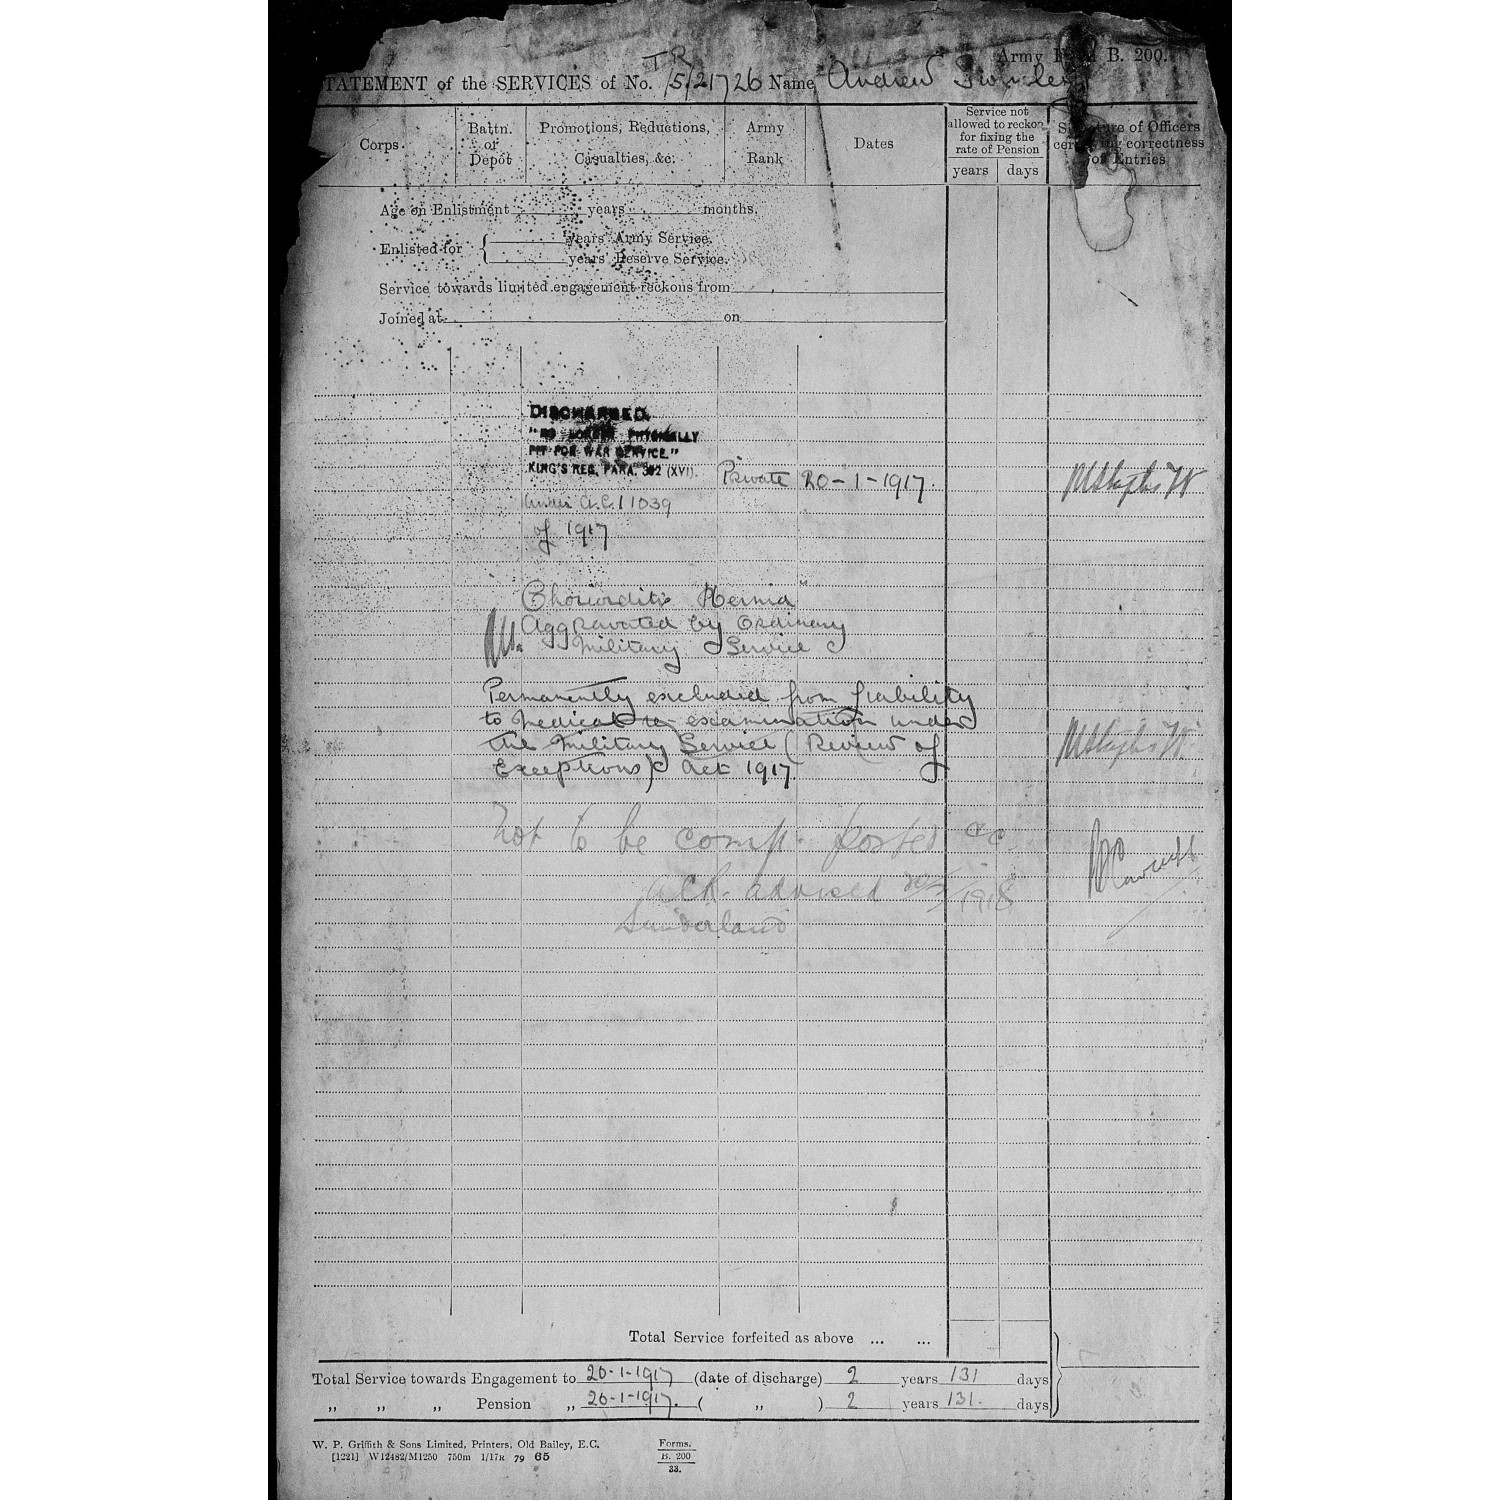 Army B. 200.
TR
TATEMENT of the SERVICES of No. /5/21726 Name Andrew
Corps. Battn. or Depôt Promotions, Reductions, Casualties, &c. Army Rank Dates Service not allowed to reckon for fixing the rate of Pension years days of Officers correctness of Entries
Age on Enlistment years months.
Enlisted for { years' Army Service.
years' Reserve Service.
Service towards limited engagement reckons from
Joined at on
DISCHARGED.
"NO LONGER PHYSICALLY
FIT FOR WAR SERVICE."
KING'S REG. PARA. 392 (XVI). Private 20-1-1917.
under A.C.I 1039
of 1917
Hernia
Aggravated by Ordinary
Military Service
Permanently excluded from liability
to medical re-examination under
the Military Service (Review of
Exceptions) Act 1917
Not to be comp. posted
advised 1918
Sunderland
Total Service forfeited as above ... ...
Total Service towards Engagement to 20-1-1917 (date of discharge) 2 years 131 days
" " " Pension " 20-1-1917. ( " ) 2 years 131. days
W. P. Griffith & Sons Limited, Printers, Old Bailey, E.C.
[1221] W12482/M1250 750m 1/17R 79 65
Forms.
B. 200
33.